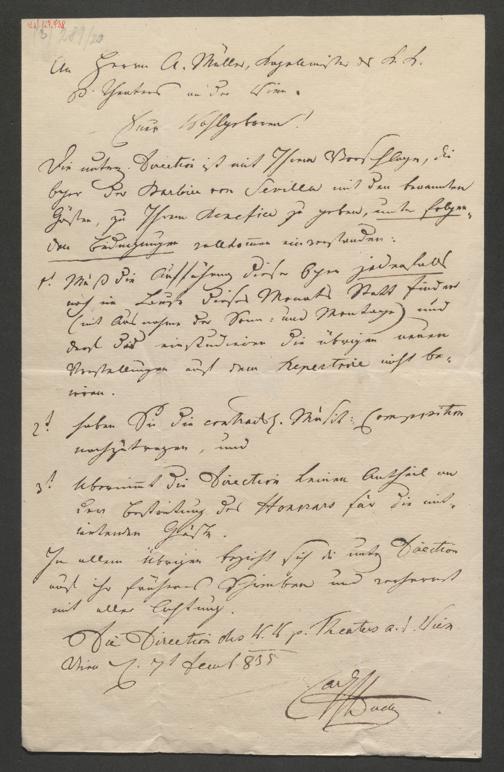 An Herrn A. Müller, Kapellmeister des k. k.
p. Theaters an der Wien.
Euer Wohlgeboren!
Die unterz. Direction ist mit Ihrem Vorschlage, die
Oper Der Barbier von Sevilla mit den benannten
Gästen, zu Ihrem Benefice zu geben, unter folgen-
den Bedingungen vollkommen einverstanden:
1t Muß die Aufführung dieser Oper jedenfalls
noch im Laufe dieses Monats Statt finden
(mit Ausnahme der Sonn- und Montage) und
darf das einstudieren die übrigen neuen
Vorstellungen aus dem Repertoire nicht be-
irren.
2t haben Sie die contractl. Musik-Composition
nachzutragen, und
3t Übernimmt die Direction keinen Antheil an
der Bestreitung des Honorars für die mit-
wirkenden Gäste.
In allem Übrigen bezieht sich die unterz Direction
auf ihr früheres Schreiben und verharrt
mit aller Achtung.
Die Direction des K. K. p. Theaters a. d. Wien
Wien 7t 835
Carl